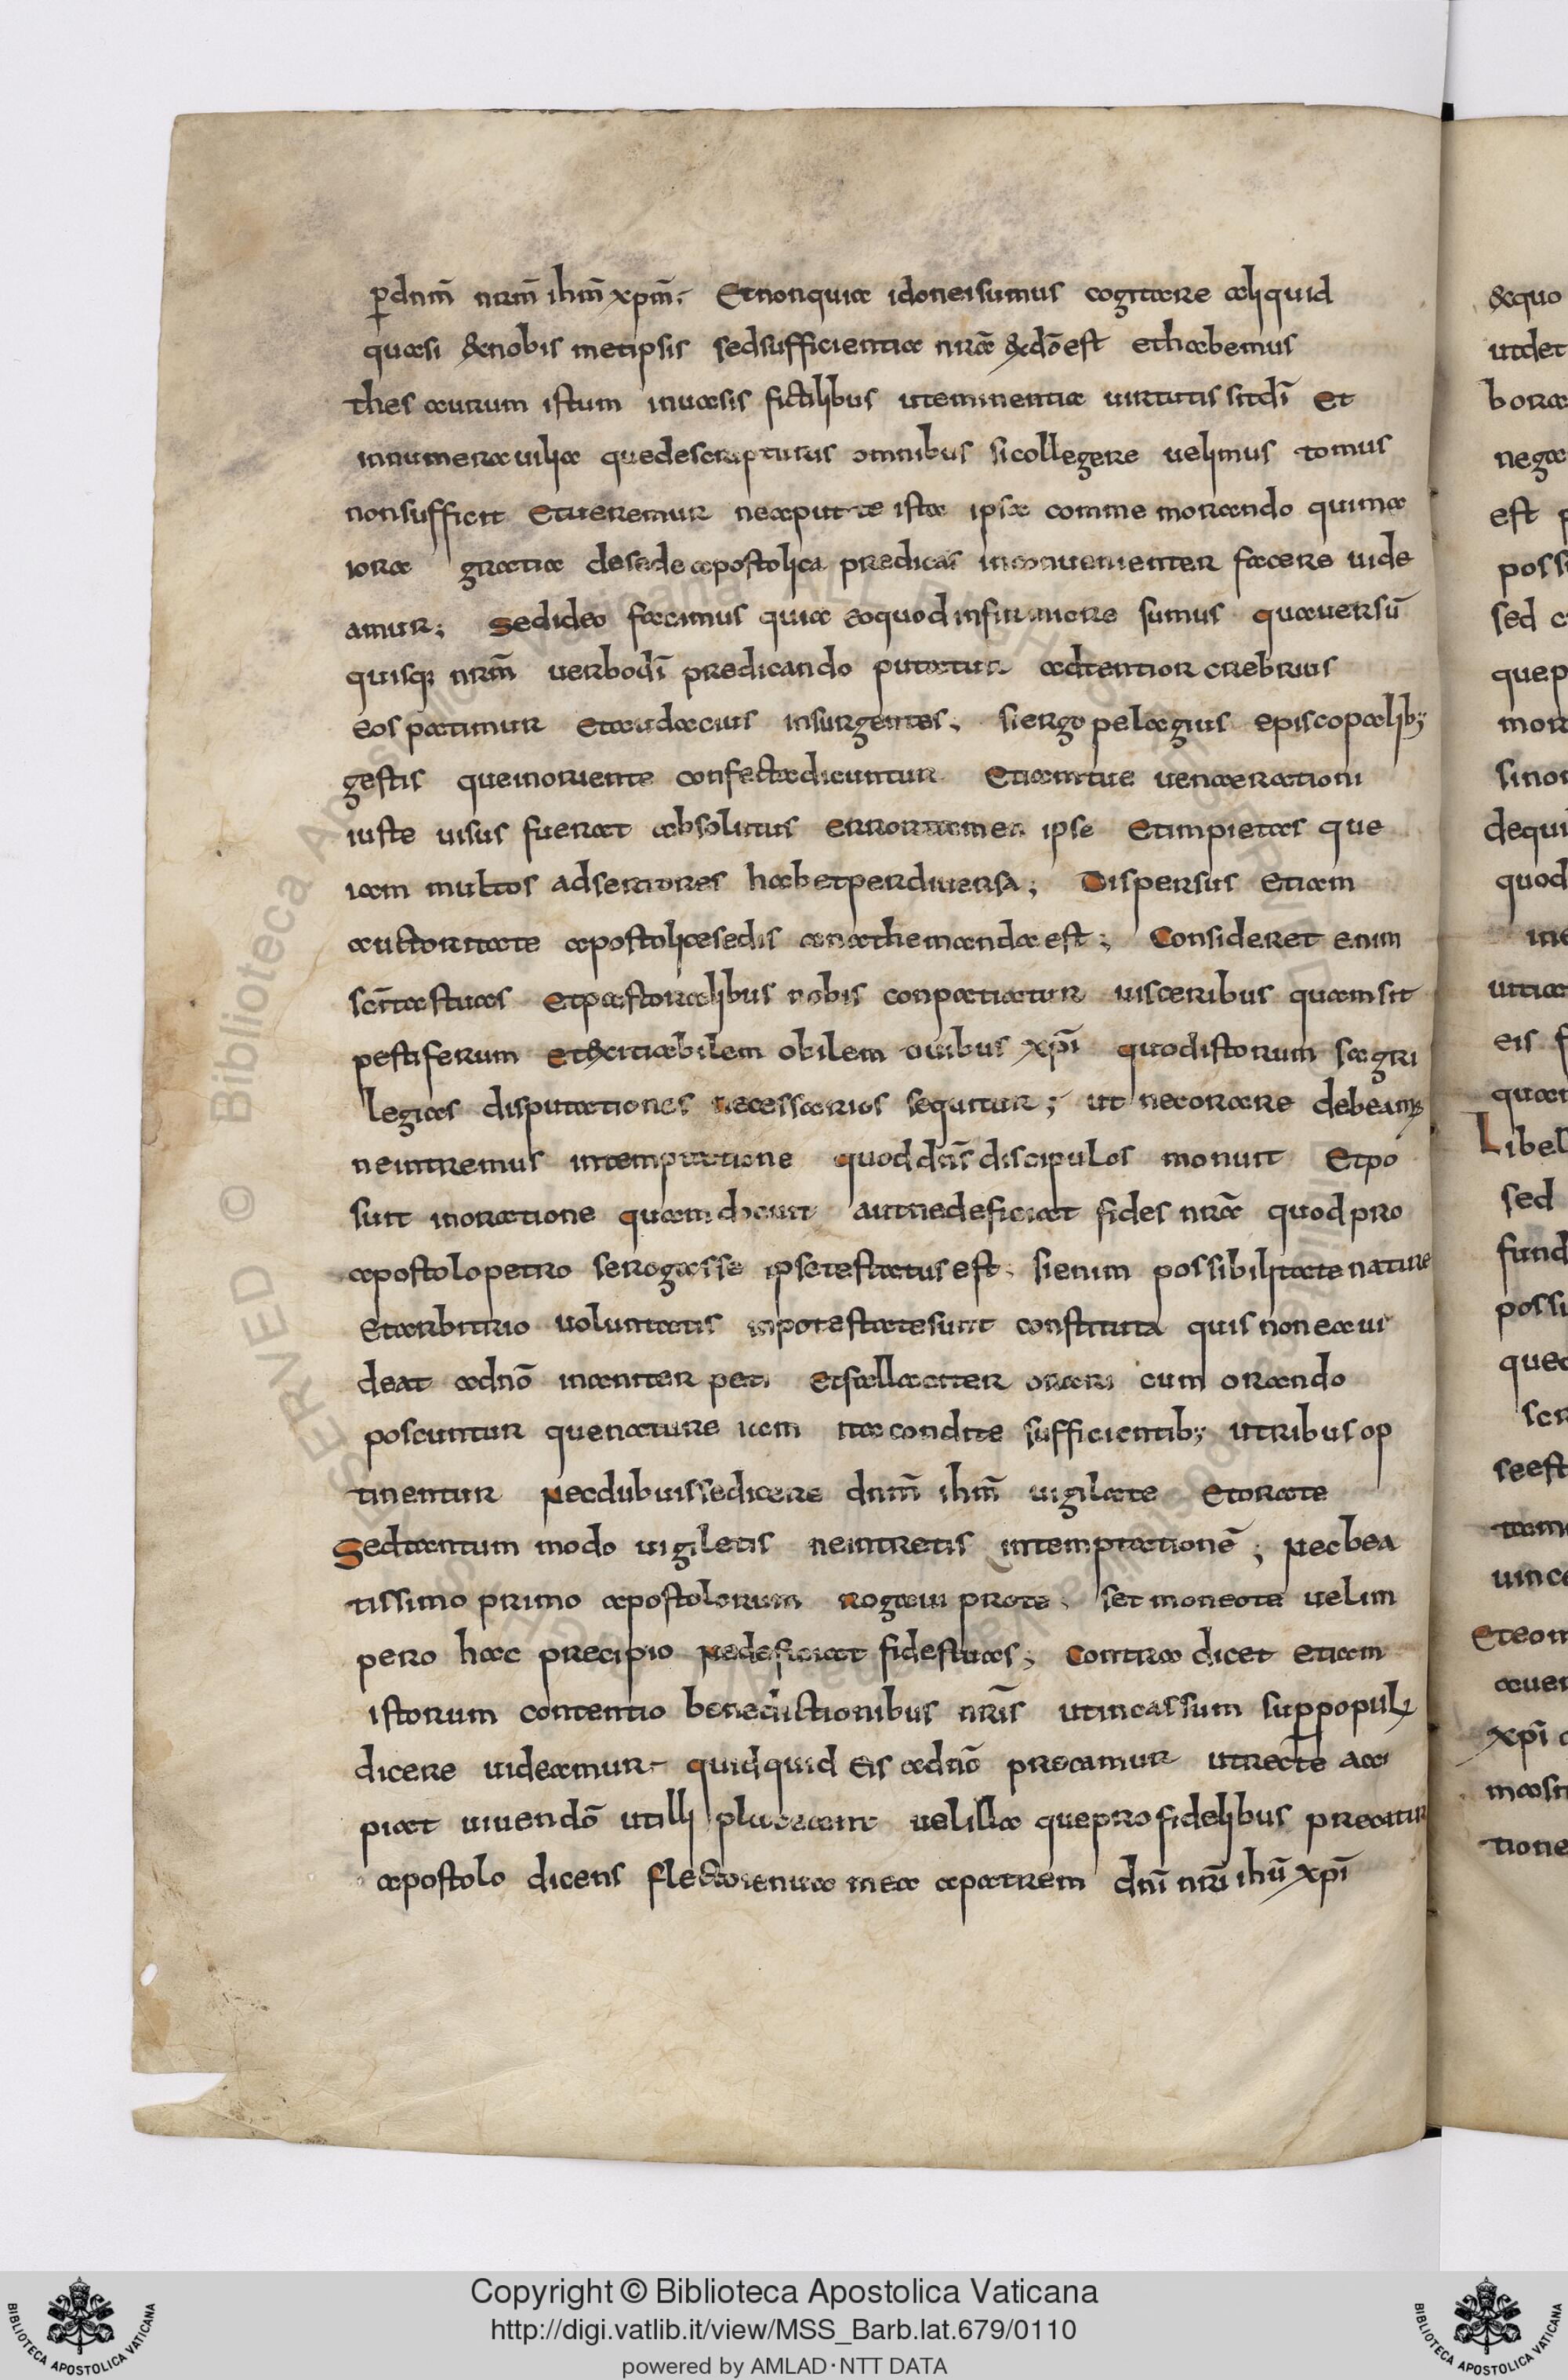 p̱dnm̄ nrm̄ ihm̄ xpm̄. Etnonquia idoneisumus cogitare aliquid
quasi exnobis metipsis sedsufficientia nrā exdō est ethabemus
thesaurum istum inuasis fictilibus uteminentia uirtutis sitdī Et
innumerauilia quedescripturis omnibus sicollegere uelimus tomus
nonsufficit Etueremur neaput te ista ipsa commemorando quima
iora gratia desede apostolica predicas inconuenienter facere uide
amur; Sedideo facimus quia eoquodinfirmiore sumus quauersū
quisq; nrm̄ uerbodī predicando putatur adtentior crebrius
eos patimur Etaudacius insurgentes. siergo pelagius episcopalib;
gestis queinoriente confectadicuntur Etiamtue uenaerationi
iuste uisus fuerat absolutus erroritamen ipse Etimpietas que
iam multos adsertores habetperdiuersa; Dispersus etiam
auctoritate apostolicesedis anathemandaest; Consideret enim
scītastuas Etpastoralibus nobis conpatiatur uisceribus quamsit
pestiferum etexitiabilem obilem ouibus xpī quodistorum sagri
legias disputationes necessarios sequitur; ut necorare debeam;
neintremus intemptatione quoddn̄s discipulos monuit Etpo
suit inoratione quamdocuit autnedeficiat fides nrā quodpro
apostolopetro serogasse ipsetestatus est. sienim possibilitate nature
Etarbitrio uoluntatis inpotestatesunt constituta quis nonea ui
deat adnō inaniter peti Etfallaciter orari cum orando
poscuntur quenature iam ita condite sufficientib; utribus op
tinentur Necdubuissedicere dnm̄ ihm̄ uigilate Etorate
Sedtantum modo uigiletis neintretis intemptationē; Necbea
tissimo primo apostolorum rogaui prote. set moneote uelim
pero hac precipio Nedeficiat fidestuas; Contra dicet etiam
istorum contentio benedictionibus nrīs utincassum suppopuli
dicere uideamur. quidquid eis adnō precamur utrecte acci
piat uiuendō utilli placeant uelilla queprofidelibus precatur
apostolo dicens Flectoienua mea apatrem dnī nrī ihū xpī
&aquo
utdet
bora
nega
est p
poss
sed c
quep
mor
sinon
dequi
quod
ine
uitia
eis f
quan
Libel
sed
fund
possi
quec
scr
seest
tam
uince
Eteom
auer
xpī
masit
tione
Copyright © Biblioteca Apostolica Vaticana
http://digi.vatlib.it/view/MSS_Barb.lat.679/0110
powered by AMLAD·NTT DATA